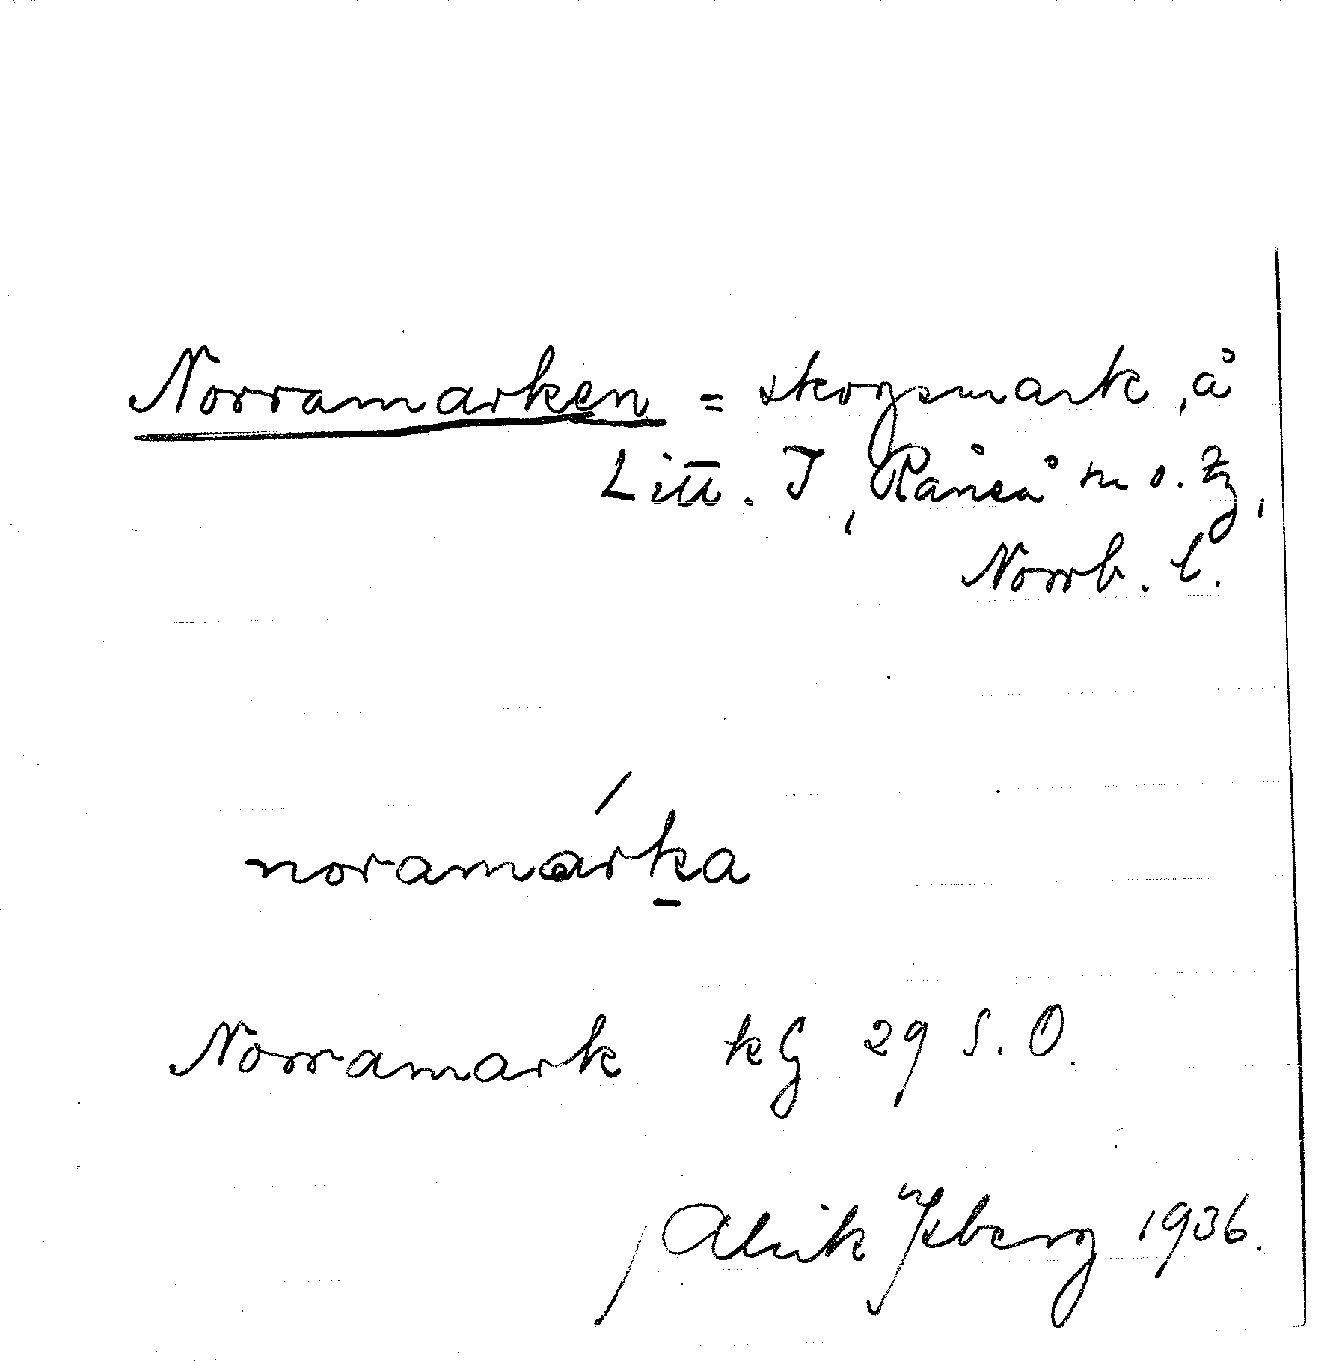 Norramarken = skogsmark, å
Litt. I, Råneå sn o. tg,
Norrb. l.
noramárka
Norramark kG 29 S.O.
Alrik Ysberg 1936.